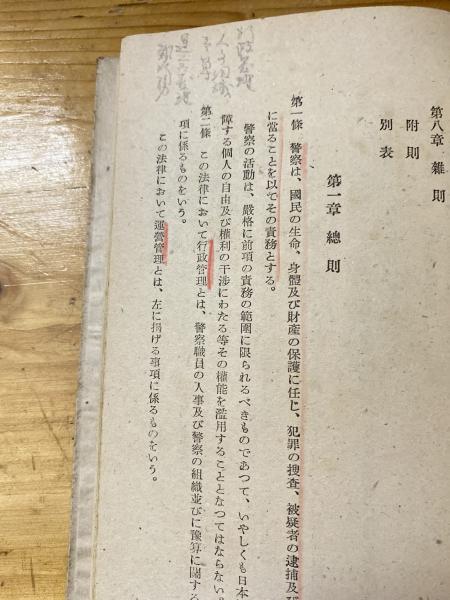 第八章 雜則
附則
別表
第一章 總則
第一條 警察は、國民の生命、身體及び財産の保護に任じ、犯罪の捜査、被疑者の逮捕及び
に當ることを以てその責務とする。
警察の活動は、嚴格に前項の責務の範圍に限られるべきものであつて、いやしくも日本
障する個人の自由及び權利の干渉にわたる等その權能を濫用することとなつてはならない。
第二條 この法律において行政管理とは、警察職員の人事及び警察の組織並びに豫算に關する
項に係るものをいう。
この法律において運營管理とは、左に掲げる事項に係るものをいう。
行政管理